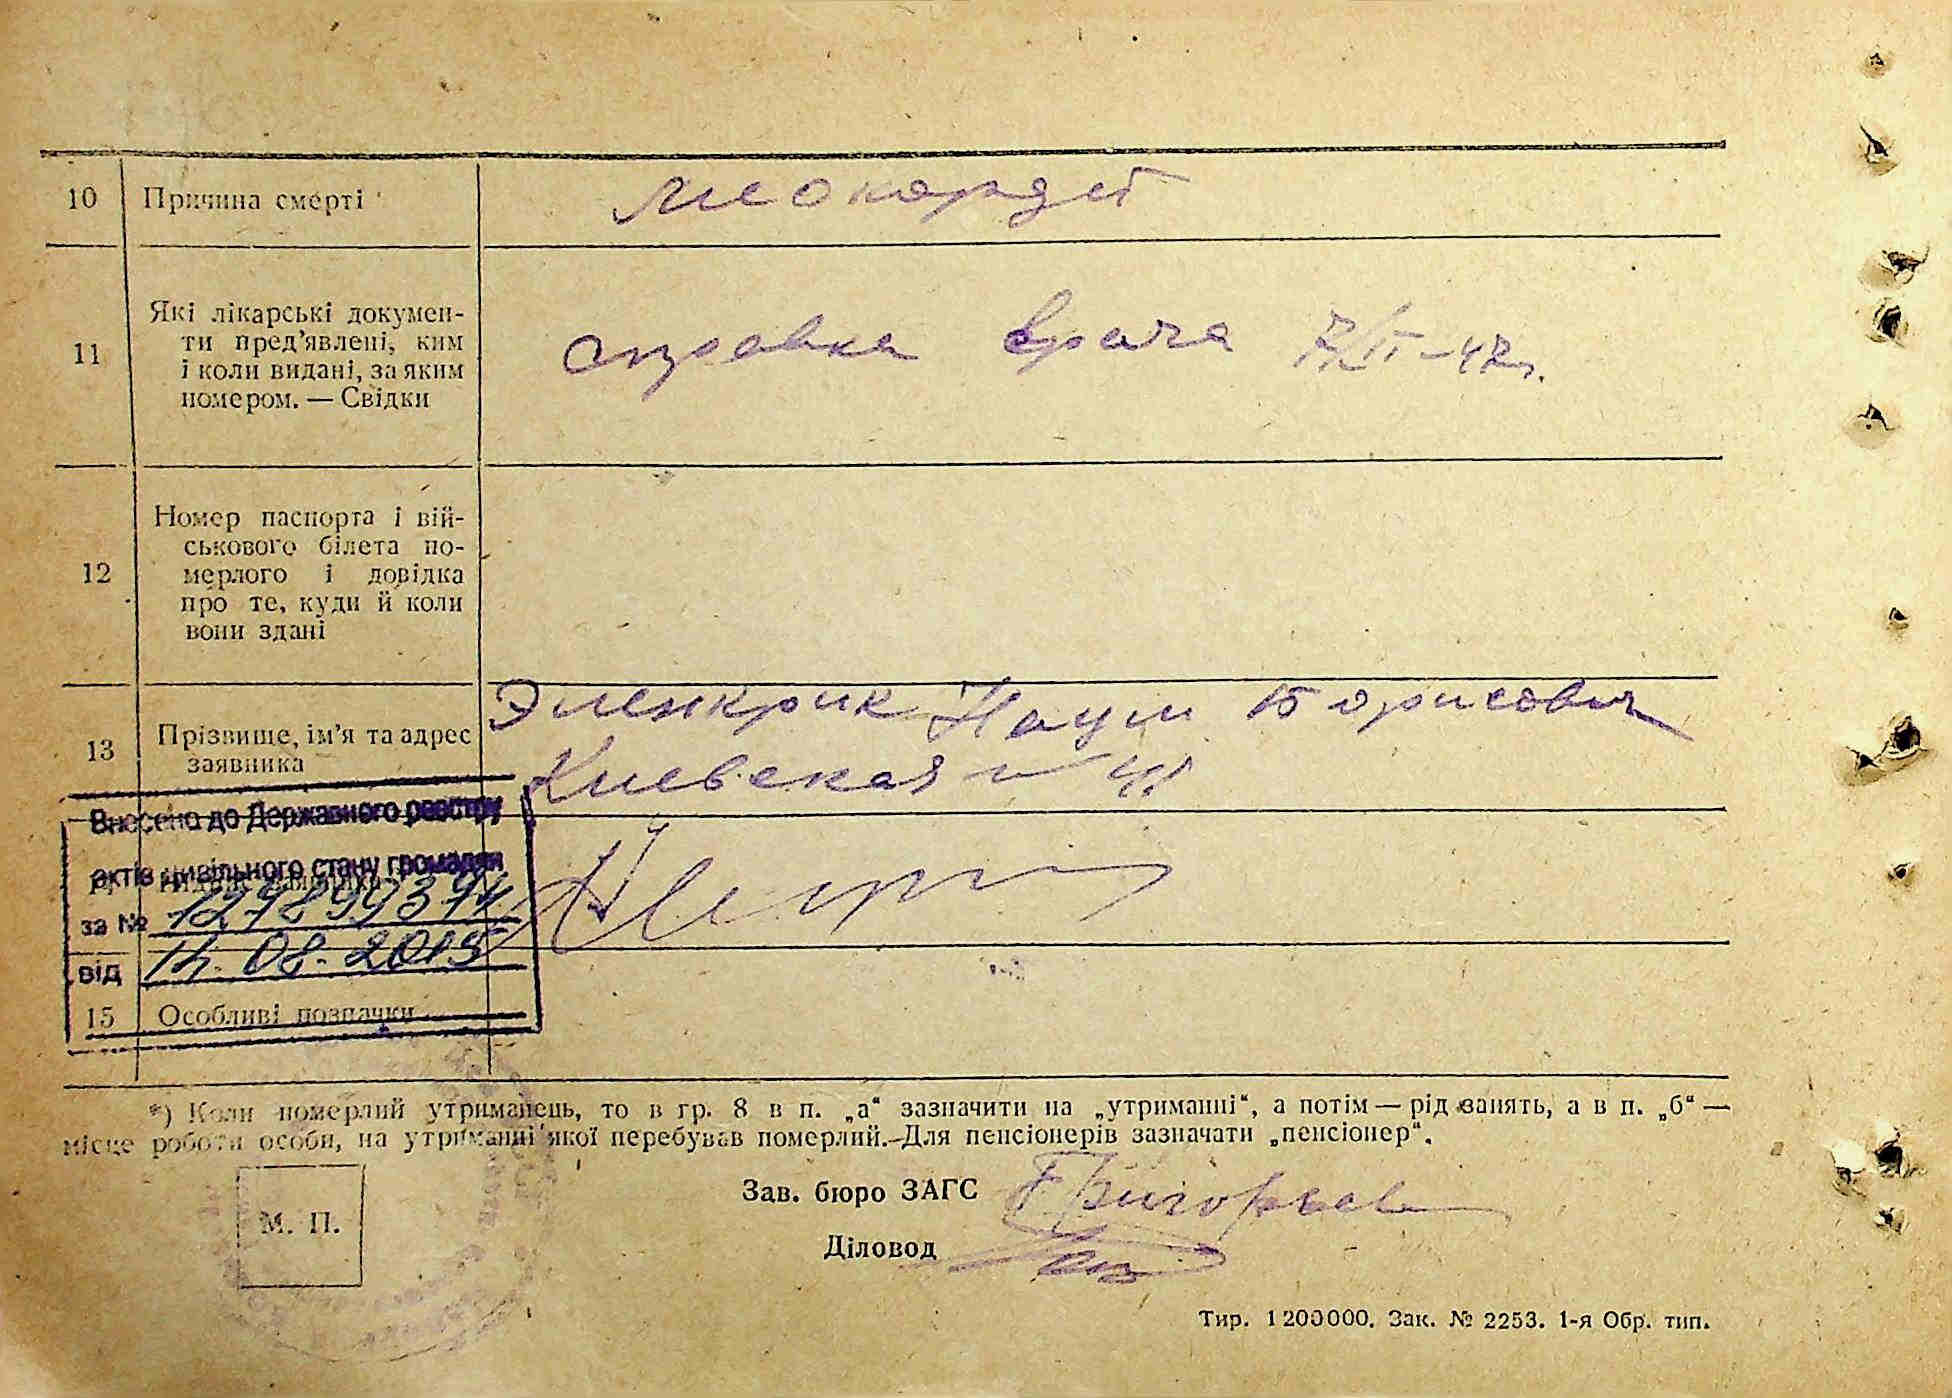 10 Причина смерти Меокардит
11 Які лікарські докумен-
ти пред'явлені, ким
і коли видані, за яким
номером. — Свідки
справка врача 7/II-47г.
12 Номер паспорта і вій-
ськового білета по-
мерлого і довідка
про те, куди й коли
вони здані
13 Прізвище, ім'я та адрес
заявника
Эленкрик Наум Борисович
Киевская № 41
Внесено до Державного реєстру
актів цивільного стану громадян
за № 1278993
від 14.08.2015
15 Особливі позначки
*) Коли померлий утриманець, то в гр. 8 в п. „а“ зазначити на „утриманні“, а потім — рід занять, а в п. „б“ —
місце роботи особи, на утриманні якої перебував померлий.—Для пенсіонерів зазначати „пенсіонер“.
М. П.
Зав. бюро ЗАГС
Діловод
Тир. 1200000. Зак. № 2253. 1-я Обр. тип.